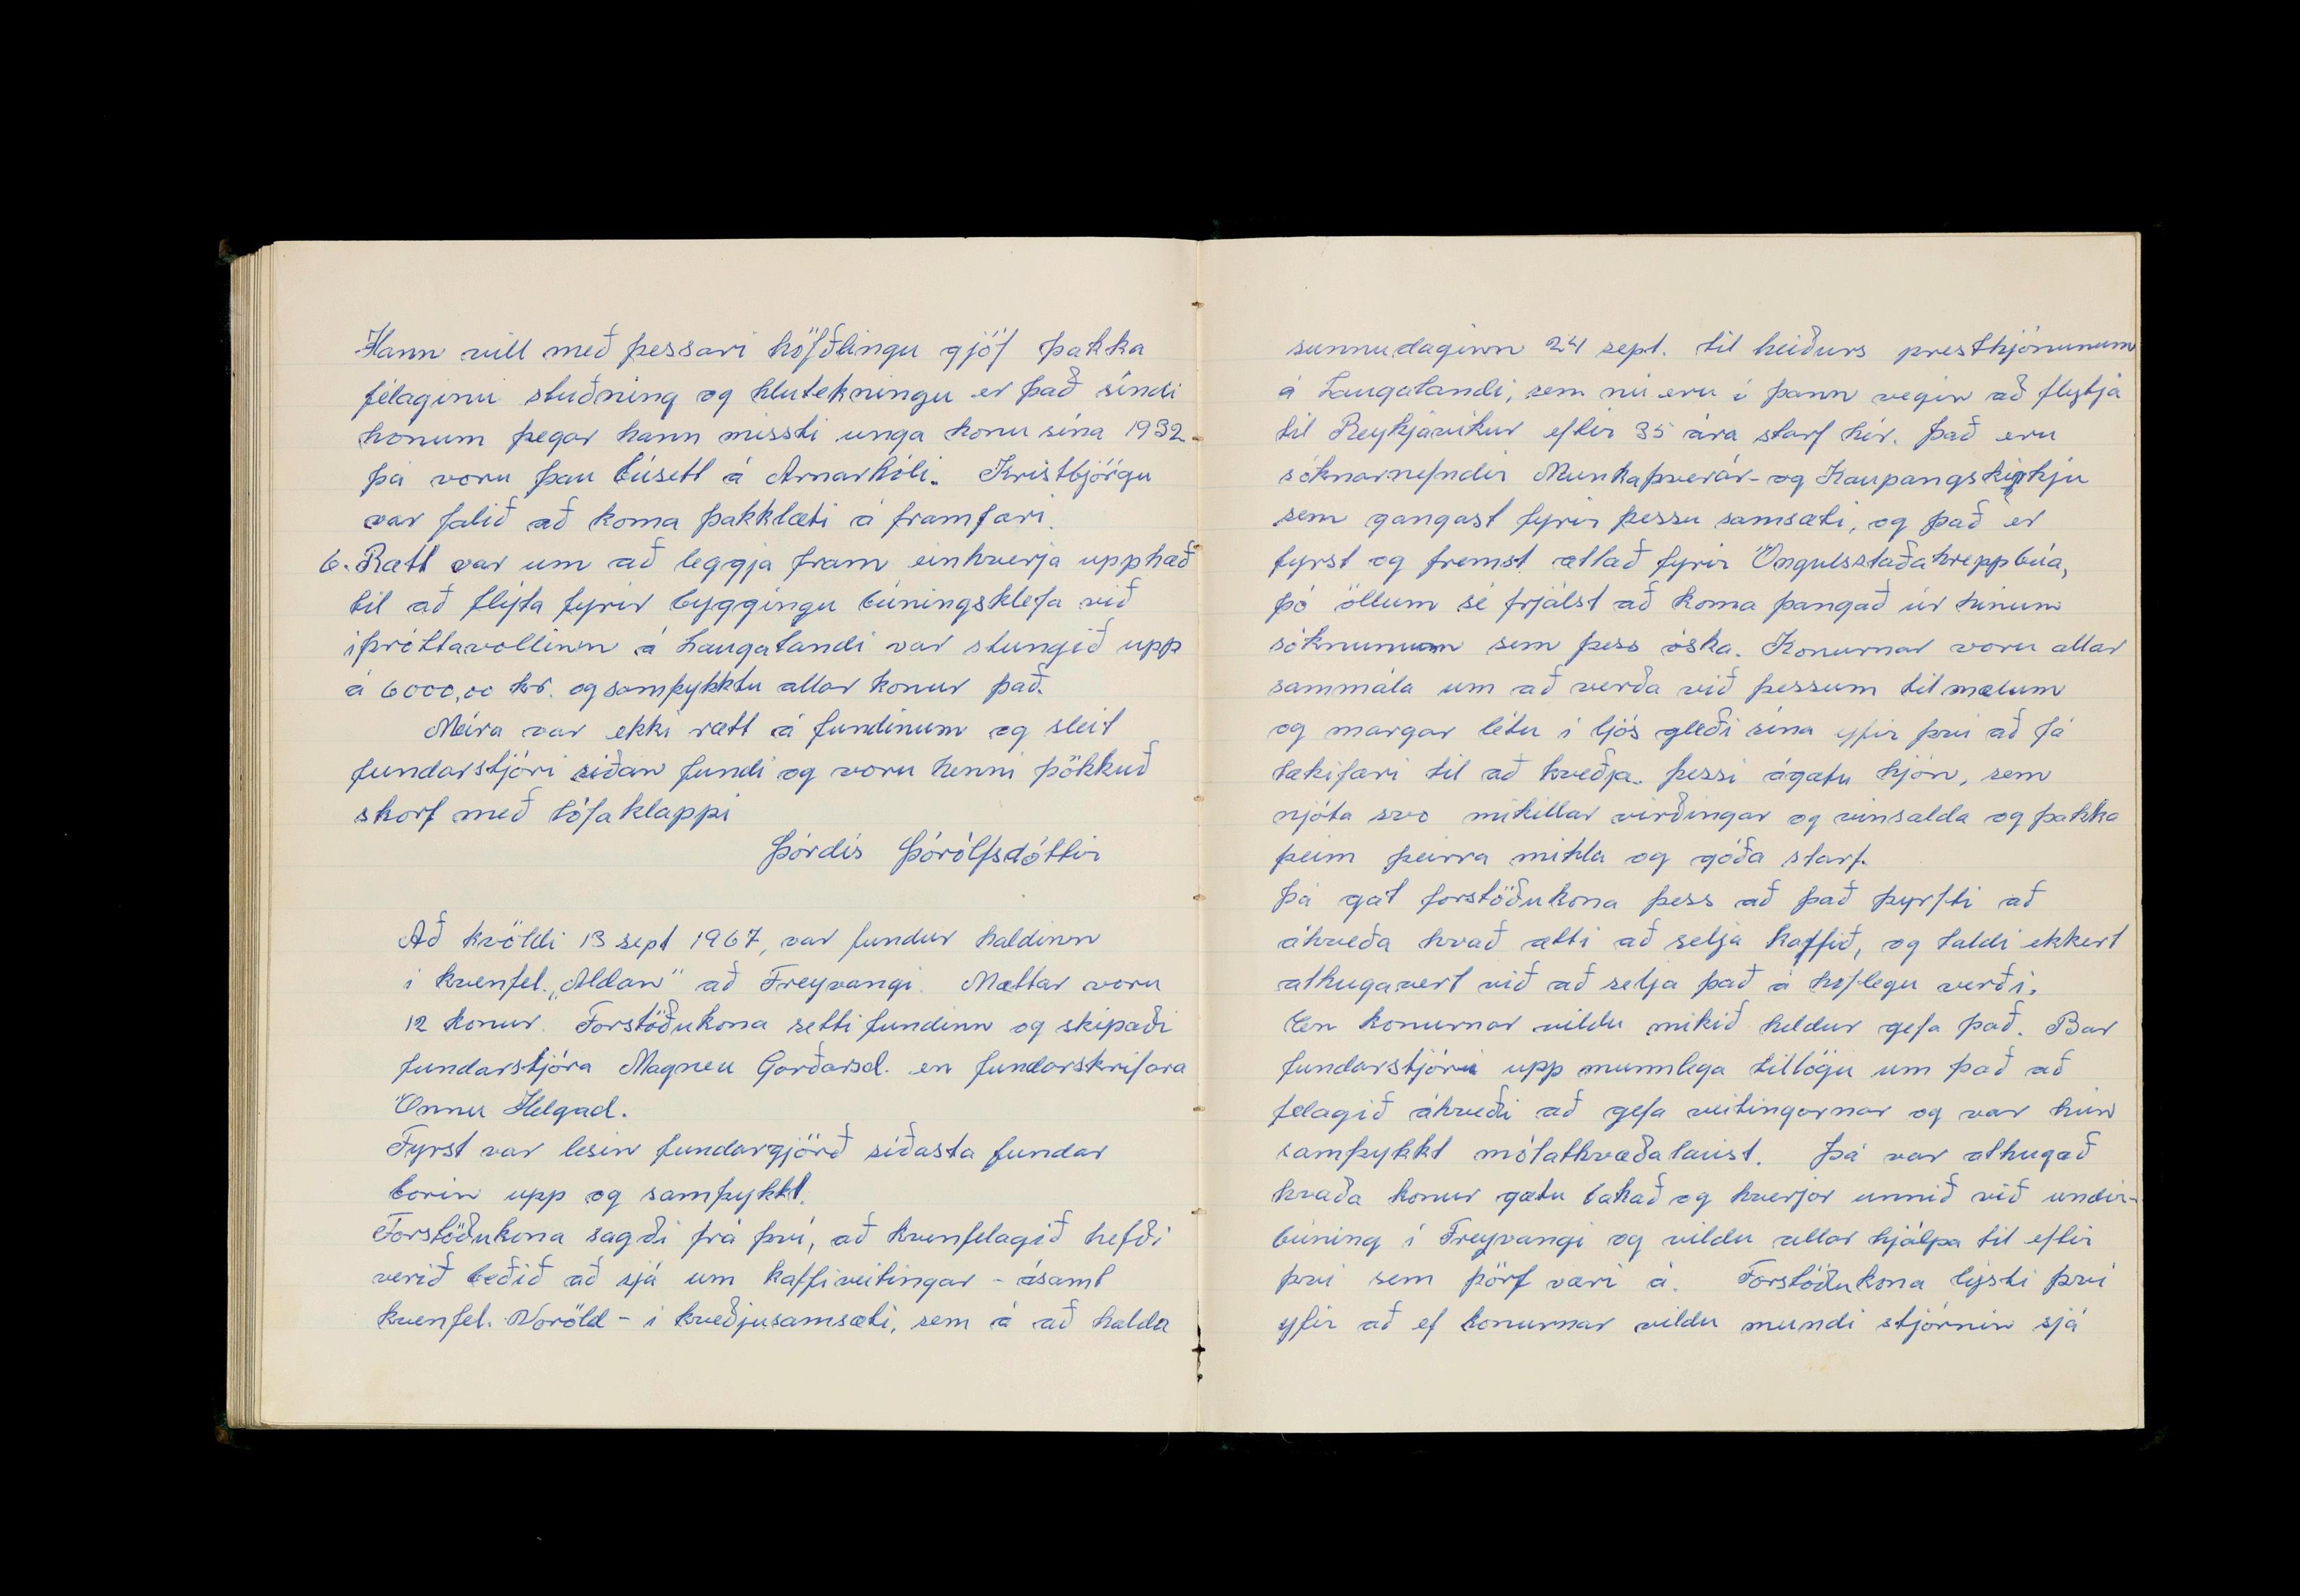 Hann vill með þessari höfðlingu gjöf þakka
félaginu stuðning og hlutekningu er það sindi
honum þegar hann missti unga konu sína 1932.
þá voru þau búsett á Arnarhóli. Kristbjörgu
var falið að koma þakklæti á framfæri.
6. Rætt var um að leggja fram einhverja upphæð
til að flýta fyrir byggingu búningsklefa við
íþróttavöllinn á Laugalandi var stungið upp
á 6000,00 kr. og samþykktu allar konur það.
Meira var ekki rætt á fundinum og sleit
fundarstjóri síðan fundi og voru henni þökkuð
störf með lófaklappi
Þórdís Þórólfsdóttir
Að kvöldi 13 sept 1967, var fundur haldinn
í kvenfel. „Aldan" að Freyvangi. Mættar voru
12 konur. Forstöðukona setti fundinn og skipaði
fundarstjóra Magneu Garðarsd. en fundarskrifara
Önnu Helgad.
Fyrst var lesin fundargjörð síðasta fundar
borin upp og samþykkt.
Forstöðukona sagði frá því, að kvenfelagið hefði
verið beðið að sjá um kaffiveitingar - ásamt
kvenfel. Voröld - í kveðjusamsæti, sem á að halda
sunnudaginn 24 sept. til heiðurs presthjónunum
á Laugalandi, sem nú eru í þann vegin að flytja
til Reykjavíkur eftir 35 ára starf hér. Það eru
sóknarnefndir Munkaþverár- og Kaupangskirkju
sem gangast fyrir þessu samsæti, og það er
fyrst og fremst ætlað fyrir Öngulsstaðahreppbúa,
þó öllum sé frjálst að koma þangað úr hinum
sóknunum sem þess óska. Konurnar voru allar
sammála um að verða við þessum tilmælum
og margar létu í ljós gleði sína yfir því að fá
tækifæri til að kveðja þessi ágætu hjón, sem
njóta svo mikillar virðingar og vinsælda og þakka
þeim þeirra mikla og góða starf.
Þá gat forstöðukona þess að það þyrfti að
ákveða hvað ætti að selja kaffið, og taldi ekkert
athugavert við að selja það á hóflegu verði.
En konurnar vildu mikið heldur gefa það. Bar
fundarstjóri upp munnlega tillögu um það að
felagið ákveði að gefa veitingarnar og var hún
samþykkt mótatkvæðalaust. Þá var athugað
hvaða konur gætu bakað og hverjar unnið við undir-
búning í Freyvangi og vildu allar hjálpa til eftir
því sem þörf væri á. Forstöðukona lýsti því
yfir að ef konurnar vildu mundi stjórnin sjá